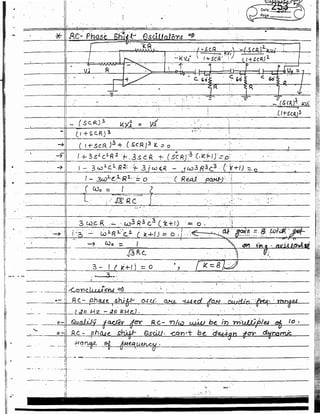 Date
Page
* RC- Phase Shift Oscillators ⇒
KR
-KVi (-SCR / 1+SCR) KVi -(SCR)² KVi / (1+SCR)²
Vi R
C C C Vo =
R R R
- (SCR)³ KVi
(1+SCR)³
- (SCR)³ KVi = Vi
(1+SCR)³
→ (1+SCR)³ + (SCR)³ K = 0
→ 1+3S²C²R² + 3SCR + (SCR)³ (K+1) = 0
→ 1 - 3ω²C²R² + 3jωCR - jω³R³C³ (K+1) = 0
1 - 3ω²C²R² = 0 (Real part)
ω₀ = 1
√3 RC
3ωCR - ω³R³C³ (K+1) = 0
3 - ω²R²C² (K+1) = 0 at gain = 8 will get
→ ω₀ = 1
√3RC
3 - 1 (K+1) = 0 , K = 8
3
Conclusions ⇒
RC- phase shift osc. are used for audio freq. ranges
(20 Hz - 20 KHz).
Quality factor for RC- n/w will be in multiples of 10.
RC- phase shift Oscill. can't be design for dynamic
range of frequency.